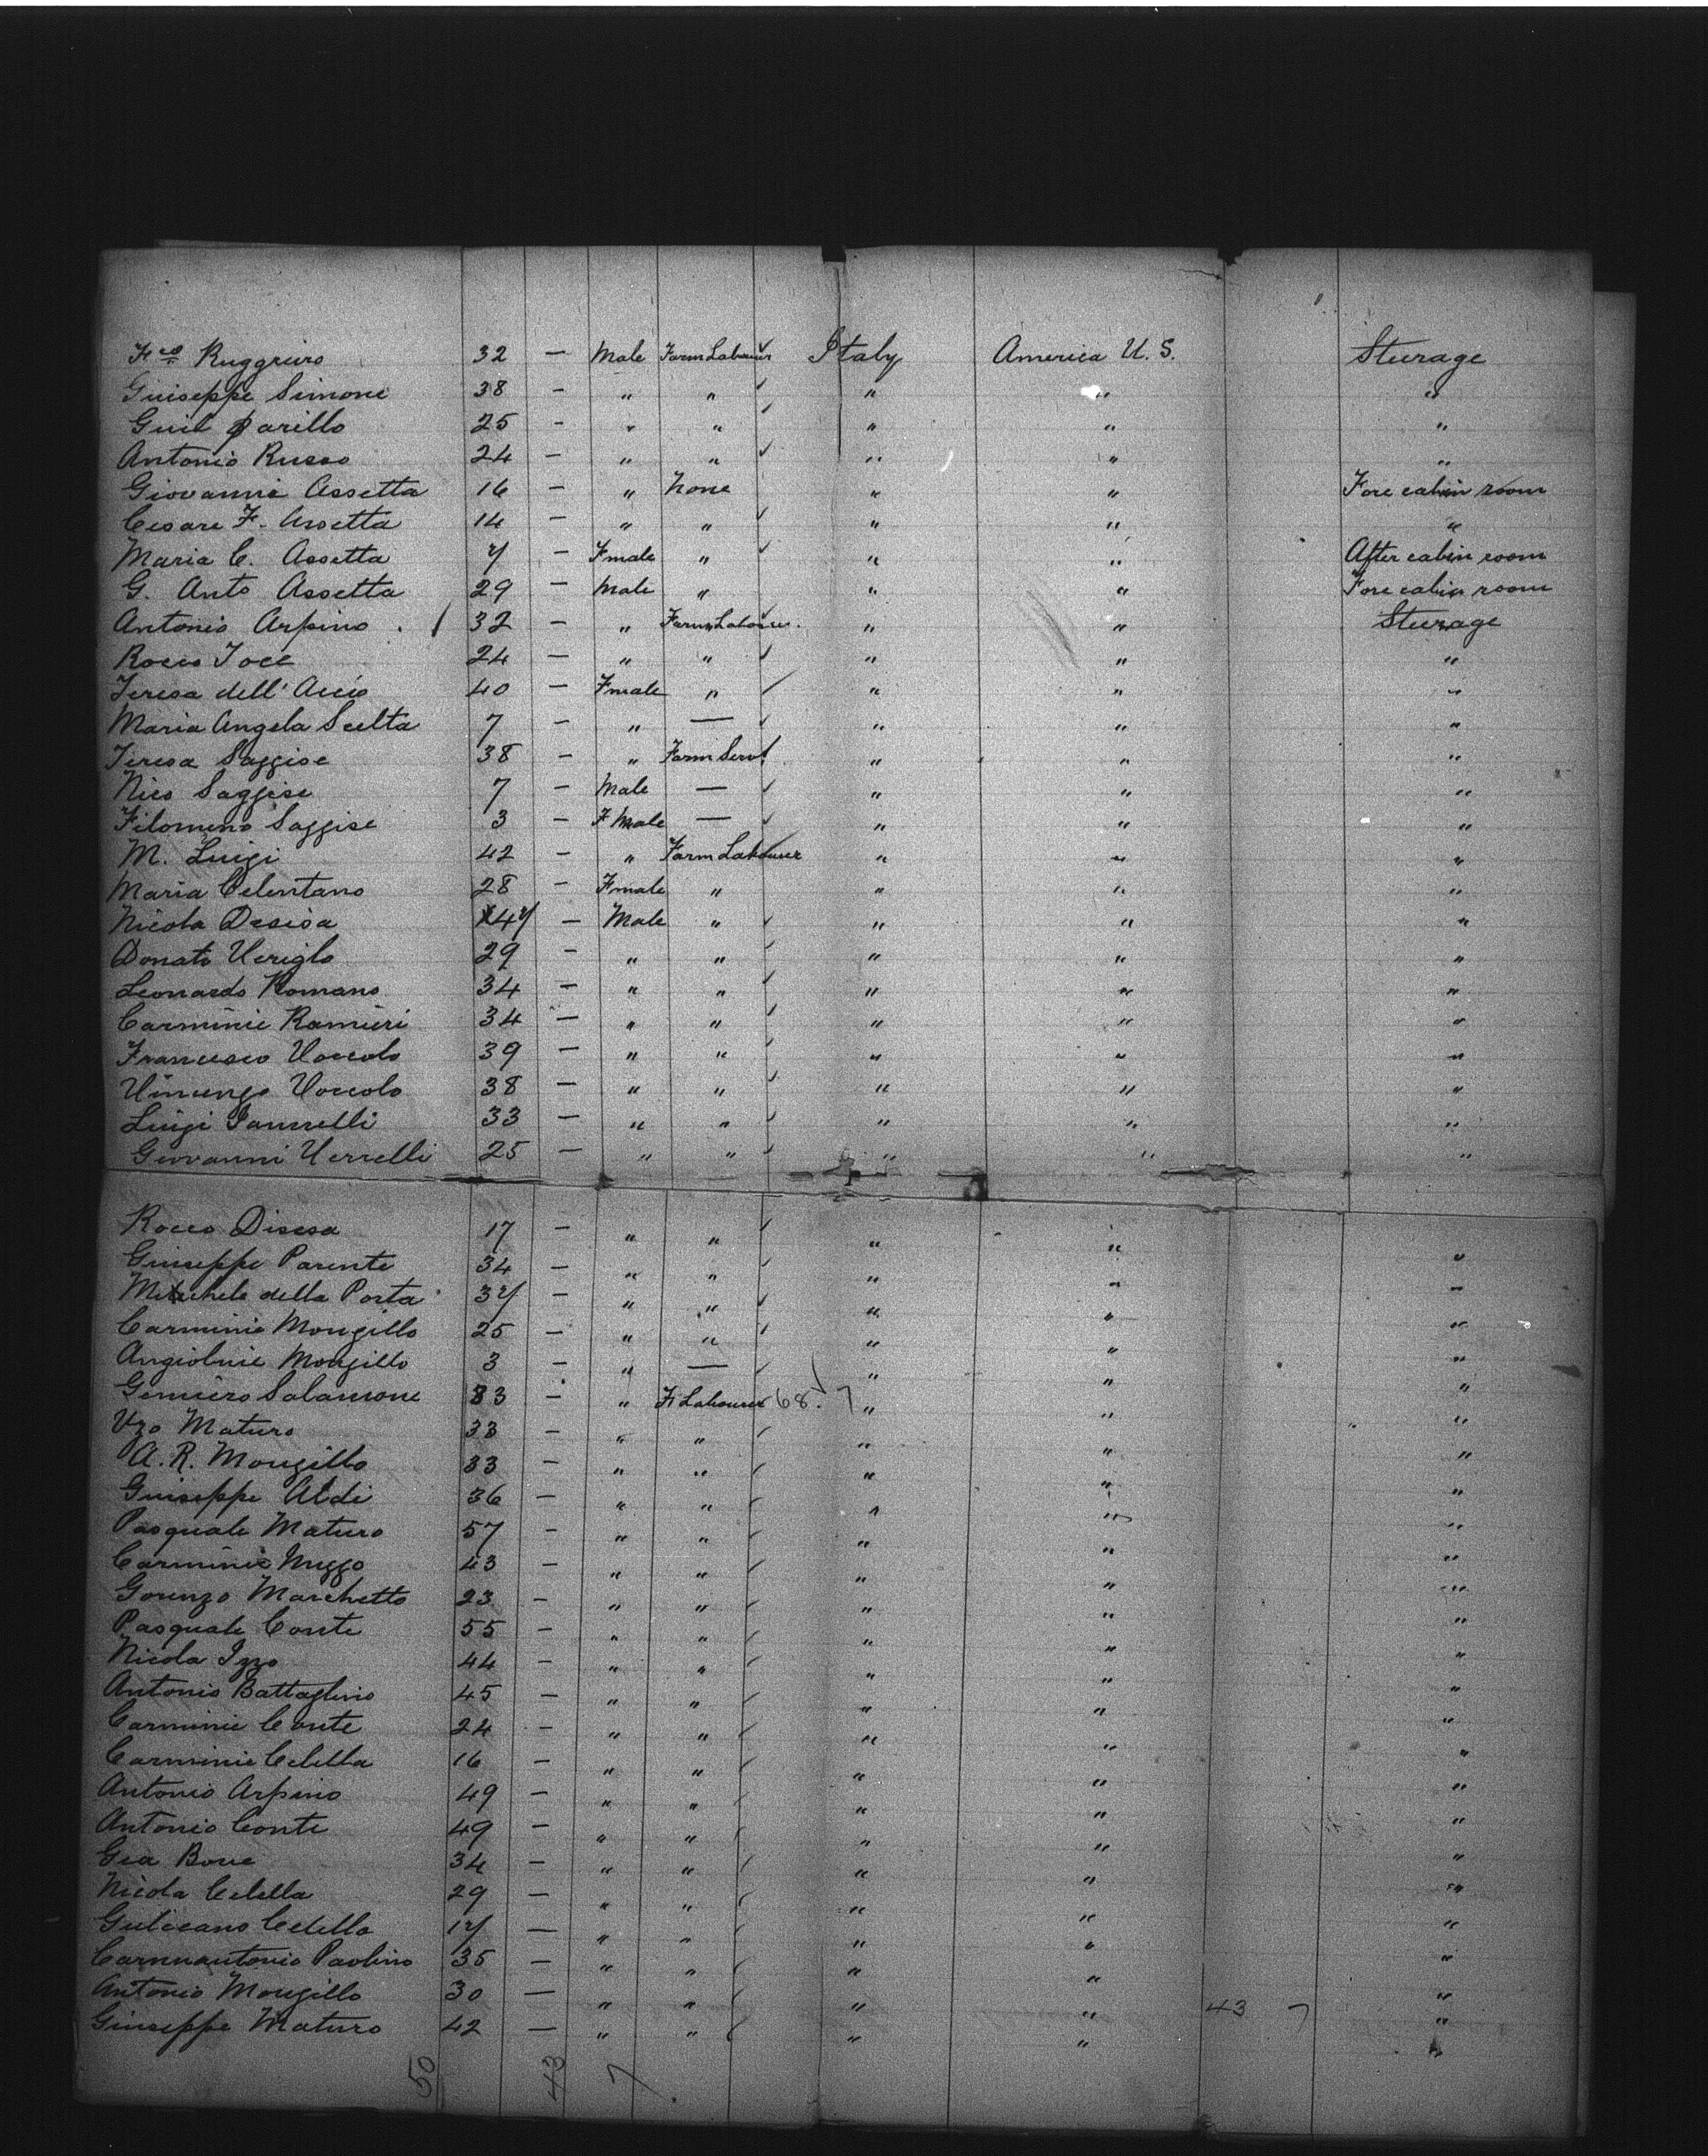 Fco Ruggriero 32 — Male Farm Labourer ✓ Italy America U. S. Sturage
Guiseppe Simone 38 - " " ✓ " " "
Guil parillo 25 - " " ✓ " " "
Antonio Russo 24 - " " ✓ " " "
Giovanni Assetta 16 - " None " " Fore cabin room
Cesare F. Assetta 14 - " " ✓ " " "
Maria C. Assetta 7 - Fmale " ✓ " " After cabin room
G. Anto Assetta 29 - Male " " " Fore cabin room
Antonio Arpino . / 32 - " Farm Labourer. ✓ " " Sturage
Rocco Joce 24 — " " ✓ " " "
Teresa dell' Accio 40 — Fmale " ✓ " " "
Maria Angela Scelta 7 - " — ✓ " " "
Teresa Saggise 38 - " Farm Servt " " "
Nico Saggise 7 - Male — ✓ " " "
Filomeno Saggise 3 - F Male — ✓ " " "
M. Luigi 42 - " Farm Labourer ✓ " " "
Maria Celentano 28 - Fmale " " " "
Nicola Desisa 47 — Male " ✓ " " "
Donato Veriglo 29 - " " ✓ " " "
Leonardo Romano 34 - " " ✓ " " "
Carminie Ramieri 34 — " " ✓ " " "
Francesco Voccolo 39 — " " ✓ " " "
Vincenzo Voccolo 38 — " " ✓ " " "
Luigi Iannelli 33 — " " ✓ " " "
Giovanni Verrelli 25 — " " ✓ " " "
Rocco Disesa 17 - " " ✓ " " "
Giuseppe Parente 34 - " " ✓ " " "
Michele della Porta 37 - " " ✓ " " "
Carminie Mongillo 25 - " " ✓ " " "
Angiolnie Mongillo 3 - " — ✓ " " "
Genniero Salamone 33 - " F. Labourer 68. 7 " " "
Vzo Maturo 33 - " " ✓ " " "
A. R. Mongillo 33 - " " ✓ " " "
Guiseppe Aldi 36 - " " ✓ " " "
Pasquale Maturo 57 - " " ✓ " " "
Carminie Nuzzo 43 - " " ✓ " " "
Gorenzo Marchetto 23 - " " ✓ " " "
Pasquale Conte 55 - " " ✓ " " "
Nicola Izzo 44 - " " ✓ " " "
Antonio Battaglino 45 - " " ✓ " " "
Carminie Conte 24 - " " ✓ " " "
Carminie Celella 16 - " " ✓ " " "
Antonio Arpino 49 - " " ✓ " " "
Antonio Conte 49 - " " ✓ " " "
Gea Bove 34 - " " ✓ " " "
Nicola Celella 29 — " " ✓ " " "
Guliceano Celella 17 — " " ✓ " " "
Carmnantonio Paolino 35 - " " ✓ " " "
Antonio Mongillo 30 — " " ✓ " " 43 7 "
Giuseppe Maturo 42 — " " ✓ " " "
50 43 7